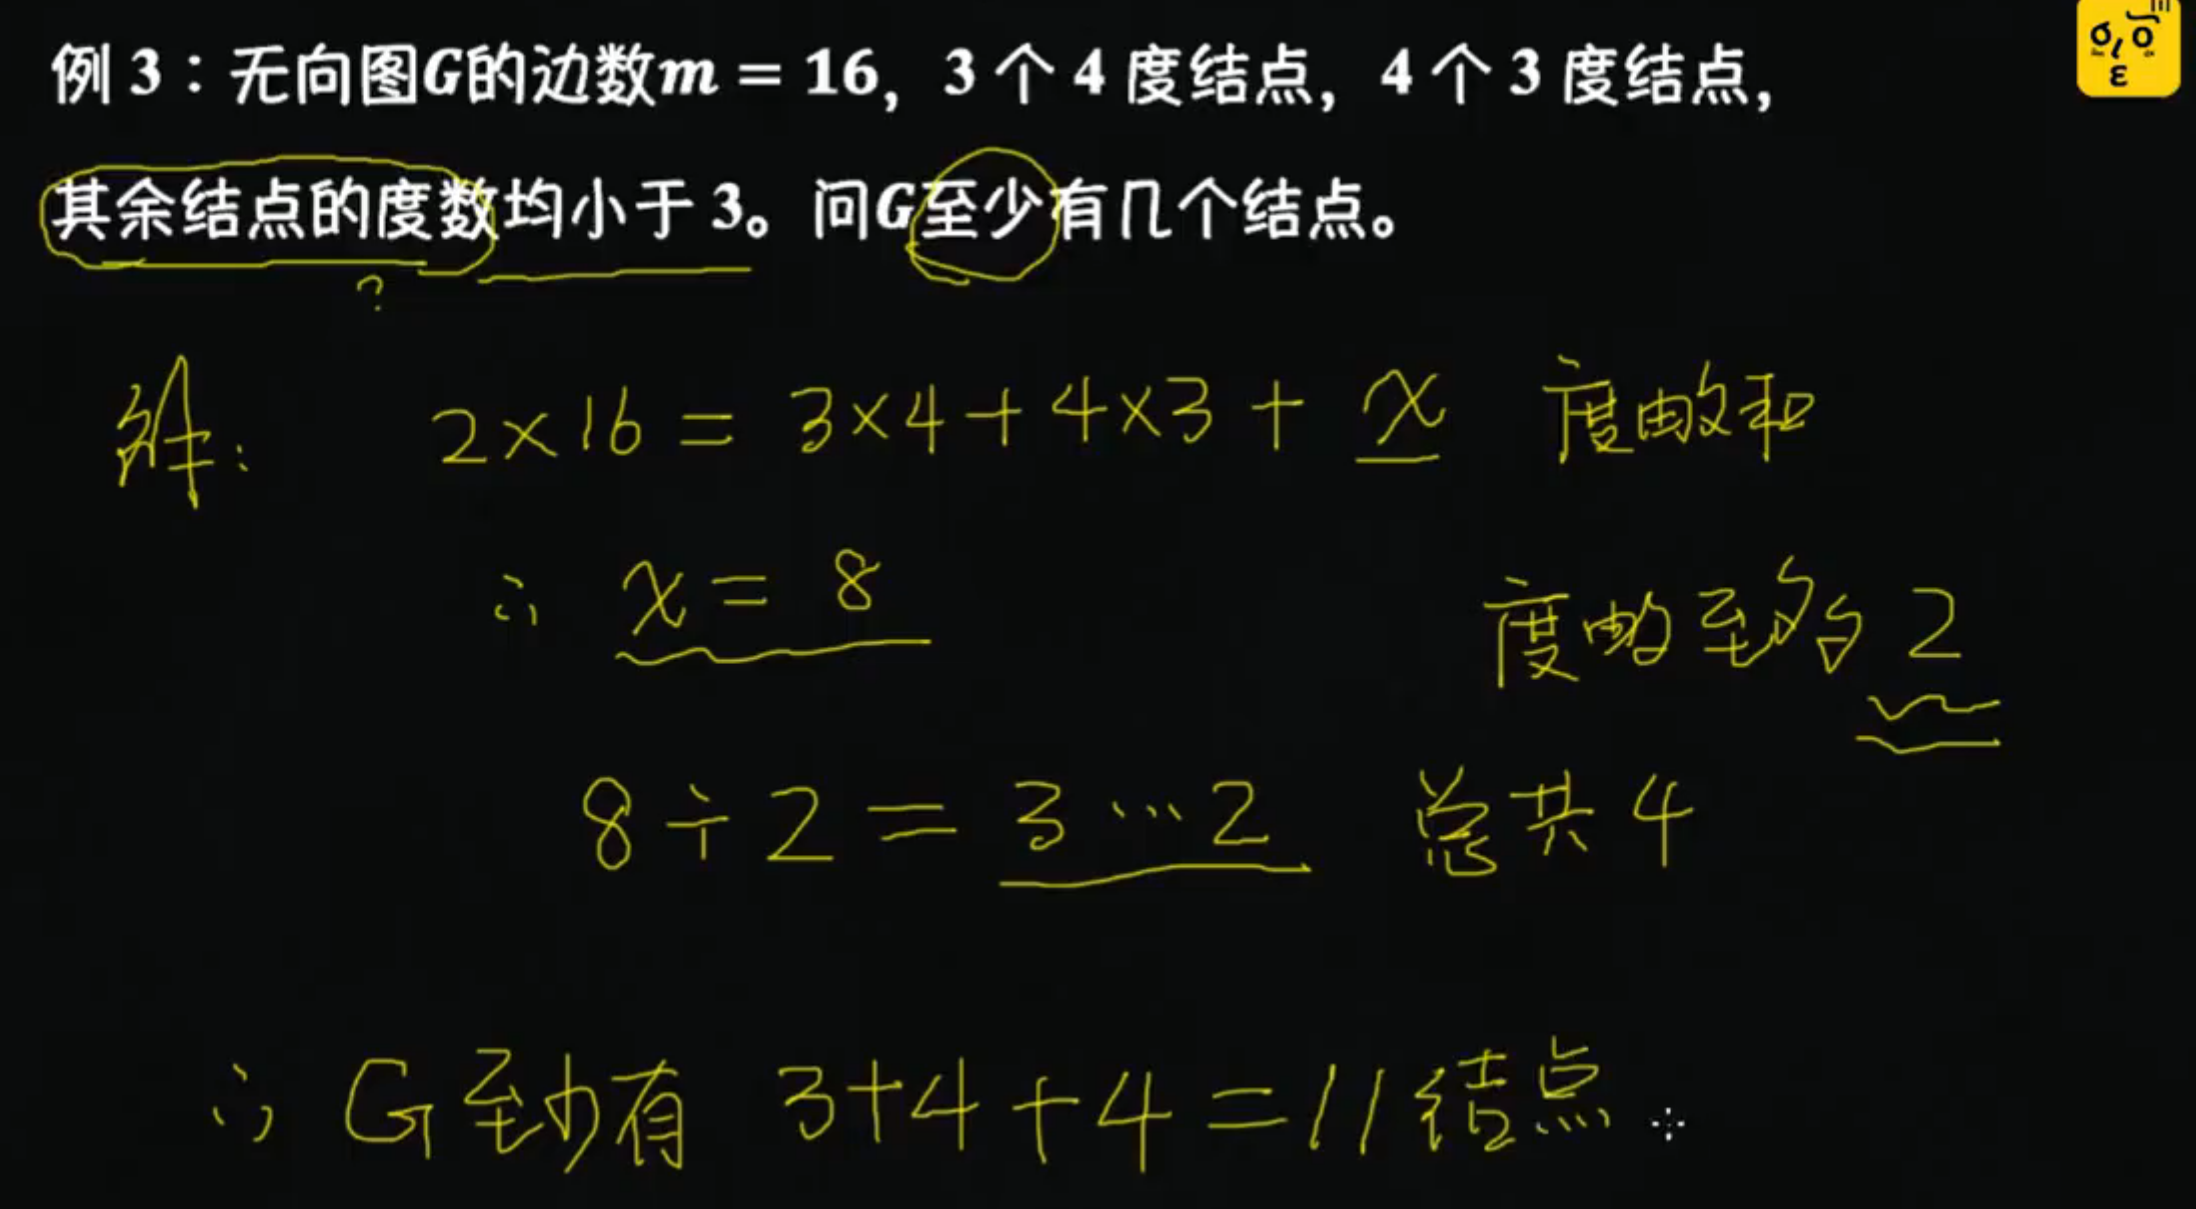 例 3：无向图G的边数m = 16，3 个 4 度结点，4 个 3 度结点，
其余结点的度数均小于 3。问G至少有几个结点。
?
解: 2×16 = 3×4+4×3+ x 度数和
∴ x = 8
度数至多为 2
8÷2 = 3…2 总共 4
∴ G至少有 3+4+4=11结点